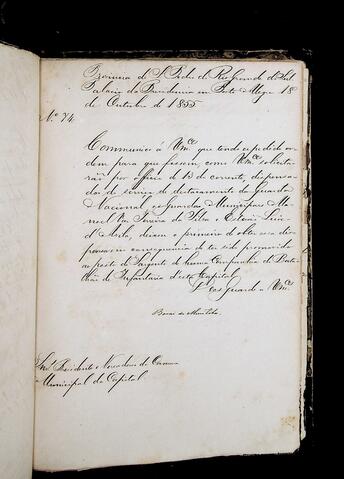 Provincia de S. Pedro do Rio Grande do Sul
Palacio da Presidencia em Porto Alegre 18
de Outubro de 1855
N.º 74.
Communico á Vm.ces que tendo expedido or-
dem para que fossem, como Vm.ces solicita-
rão por officio de 13 do corrente, dispensa-
dos do serviço de destacamento da Guarda
Nacional os Guardas Municipaes Ma-
noel Vaz Ferreira da Silva e Estevão
d'Avila, deixou o primeiro de obter essa dis-
pensa em consequencia de ter sido promovido
ao posto de Sargento de huma Companhia do Bata-
lhão de Infantaria d'esta Capital.
Deos Guarde a Vm.ces
Barão de Muritiba.
Snr.es Presidente e Vereadores da Camara
Municipal da Capital.